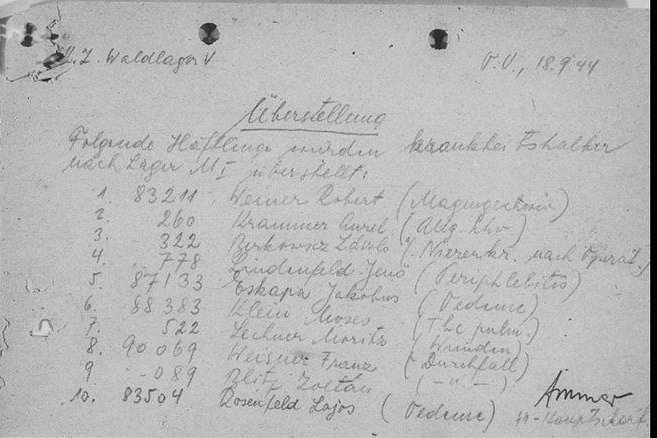 K.Z. Waldlager V
V.V., 18.9.44
Überstellung
Folgende Häftlinge wurden krankheitshalber
nach Lager M I überstellt:
1. 83211 Werner Robert (
2. 260 Krammer Aurel (Allg.
3. 322 Berkovicz László (Nierenkr. nach Operat.)
4. 778 Lindenfeld Jenö (
5. 87133 Eskapa Jakobus (Oedeme)
6. 88383 Klein Moses (Tbc pulm.)
7. 522 Lechner Moritz (Wunden)
8. 90069 Weisner Franz (Durchfall)
9 -089 Blitz Zoltán (- " -)
10. 83504 Rosenfeld Lajos (Oedeme)
Ammer
SS-Hauptscharf.